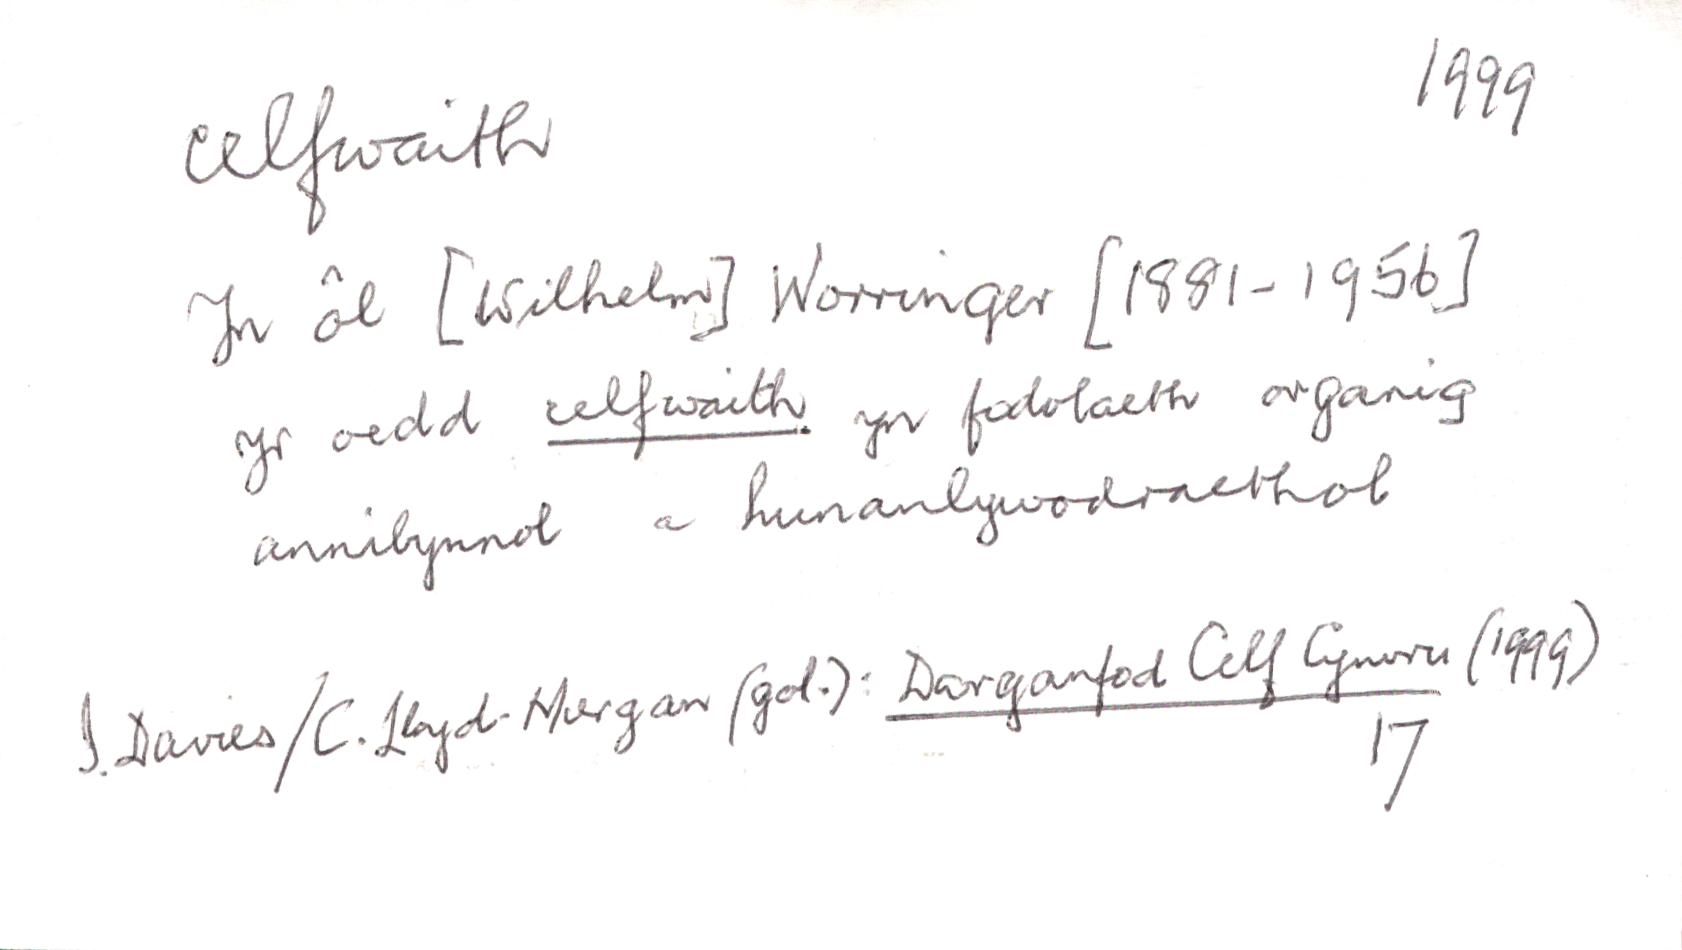 celfwaith 1999
Yn ôl [Wilhelm] Worringer [1881-1956]
yr oedd celfwaith yn fodolaeth organig
annibynnol a hunanlywodraethol
I. Davies/C. Lloyd-Morgan (gol.): Darganfod Celf Cymru (1999)
17